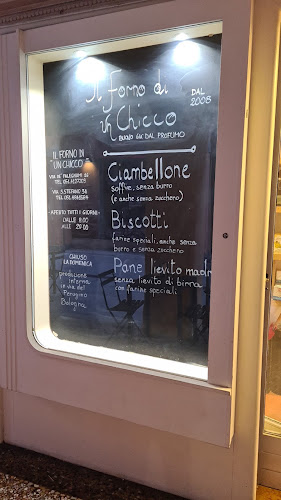 Il Forno di
un Chicco
DAL
2008
BUONO GIÀ DAL PROFUMO
IL FORNO DI
"UN CHICCO"
VIA S. STEFANO
- APERTO TUTTI I GIORNI -
DALLE
ALLE 20:00
CHIUSO
LA DOMENICA
produzione
interna
in via del
Perugino
Bologna
Ciambellone
soffice, senza burro
(e anche senza zucchero)
Biscotti
farine speciali, anche senza
burro e senza zucchero
Pane lievito madre
senza lievito di birra
con farine speciali